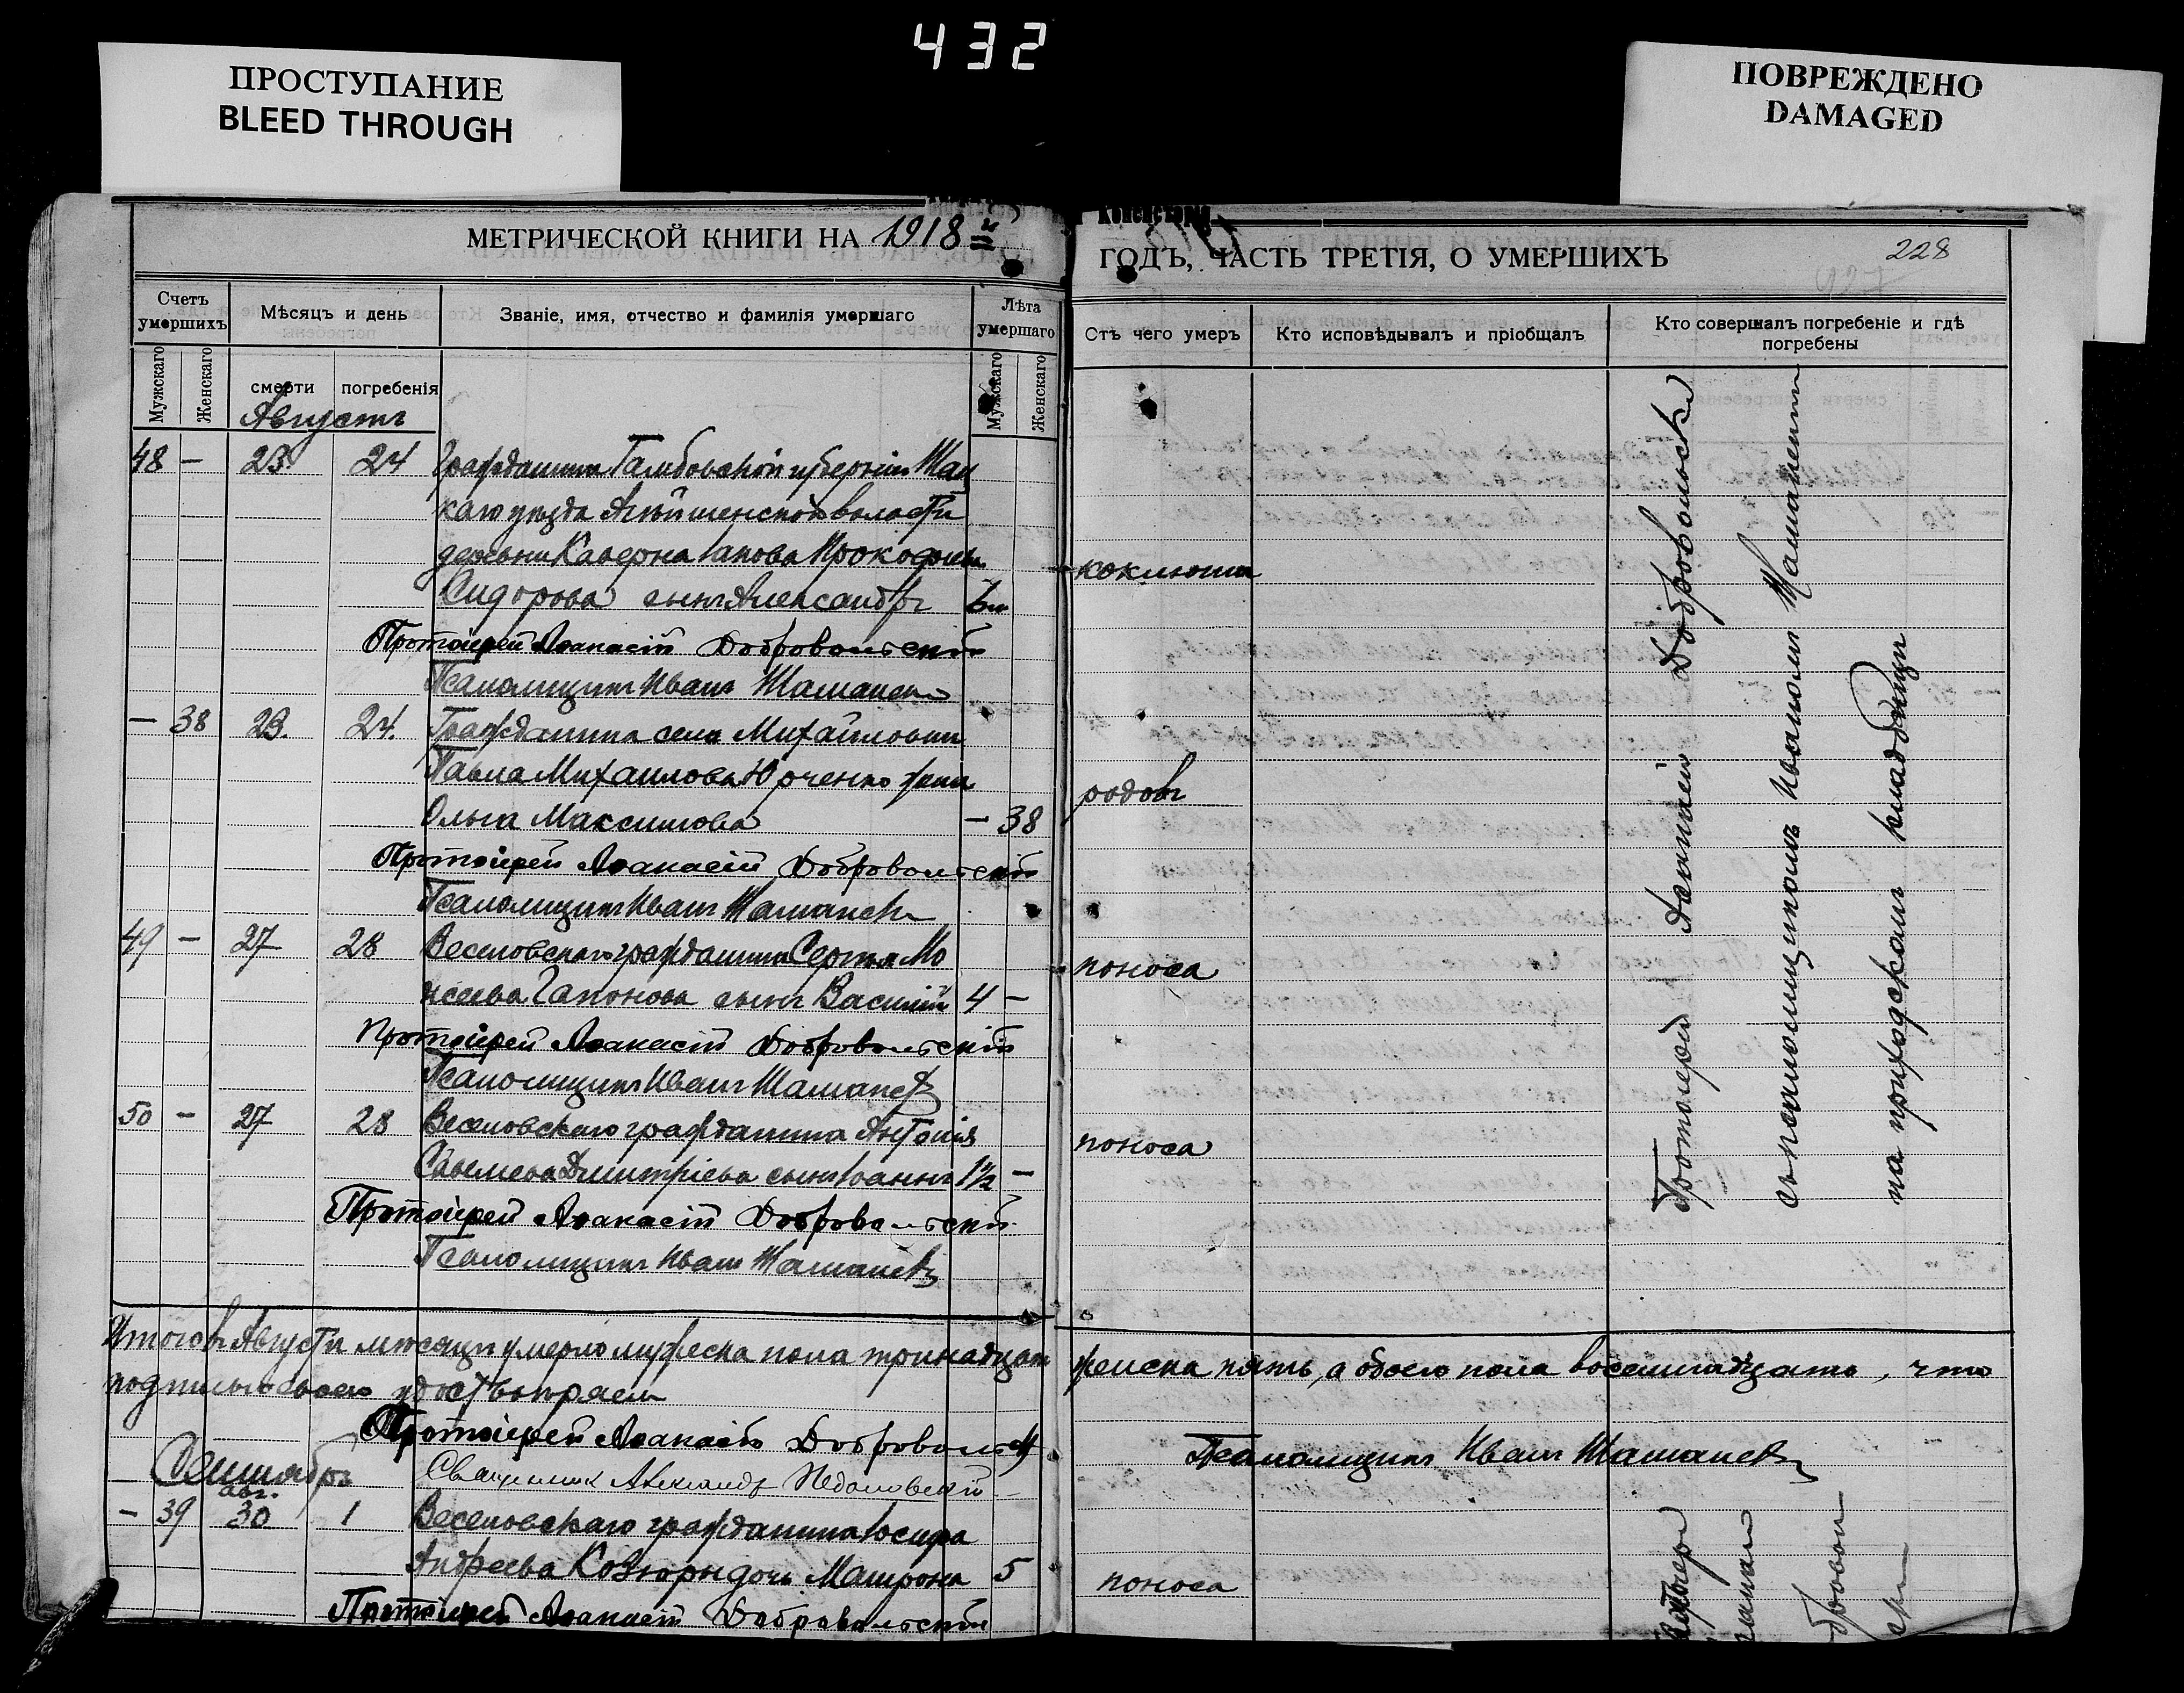 432
ПРОСТУПАНИЕ
BLEED THROUGH
ПОВРЕЖДЕНО
DAMAGED
МЕТРИЧЕСКОЙ КНИГИ НА 1918 й
ГОДЪ, ЧАСТЬ ТРЕТІЯ, О УМЕРШИХЪ
228
227
Счетъ умершихъ
Мужскаго
Женскаго
Мѣсяцъ и день
смерти
погребенія
Званіе, имя, отчество и фамилія умершаго
Лѣта умершаго
Мужскаго
Женскаго
Отъ чего умеръ
Кто исповѣдывалъ и пріобщалъ
Кто совершалъ погребеніе и гдѣ погребены
Августъ
48 — 23 24 Гражданина Тамбовской губерніи Шац
каго уѣзда волости
деревни Прокофія
Сидорова сынъ Александръ
коклюша
Протоіерей Аѳанасій Добровольскій
Псаломщикъ Иванъ
— 38 23. 24. Гражданина села Михайловки
Павла Михайлова Юрченко жена
родовъ
Ольга Максимова — 38
Протоіерей Аѳанасій Добровольскій
Псаломщикъ Иванъ
49 — 27 28 Веселовскаго гражданина Сергѣя Мо
поноса
исеева Гапонова сынъ Василій 4 —
Протоіерей Аѳанасій Добровольскій
Псаломщикъ Иванъ
50 — 27 28 Веселовскаго гражданина Антонія
поноса
Савельева Дмитріева сынъ Іоаннъ 1½ —
Протоіерей Аѳанасій Добровольскій
Псаломщикъ Иванъ
Протоіерей Аѳанасій Добровольскій
съ псаломщикомъ Иваномъ
на приходскомъ кладбищѣ
Итого въ Августѣ мѣсяцѣ умерло мужеска пола тринадцать женска пять, а обоего пола восемнадцать, что
подписью своею удостовѣряемъ
Протоіерей Аѳанасій Добровольскій
Псаломщикъ Иванъ
Священникъ Александръ
Сентябрь
авг.
— 39 30 1 Веселовскаго гражданина Іосифа
Андреева Козюры дочь Матрона 5
поноса
Протоіерей Аѳанасій Добровольскій